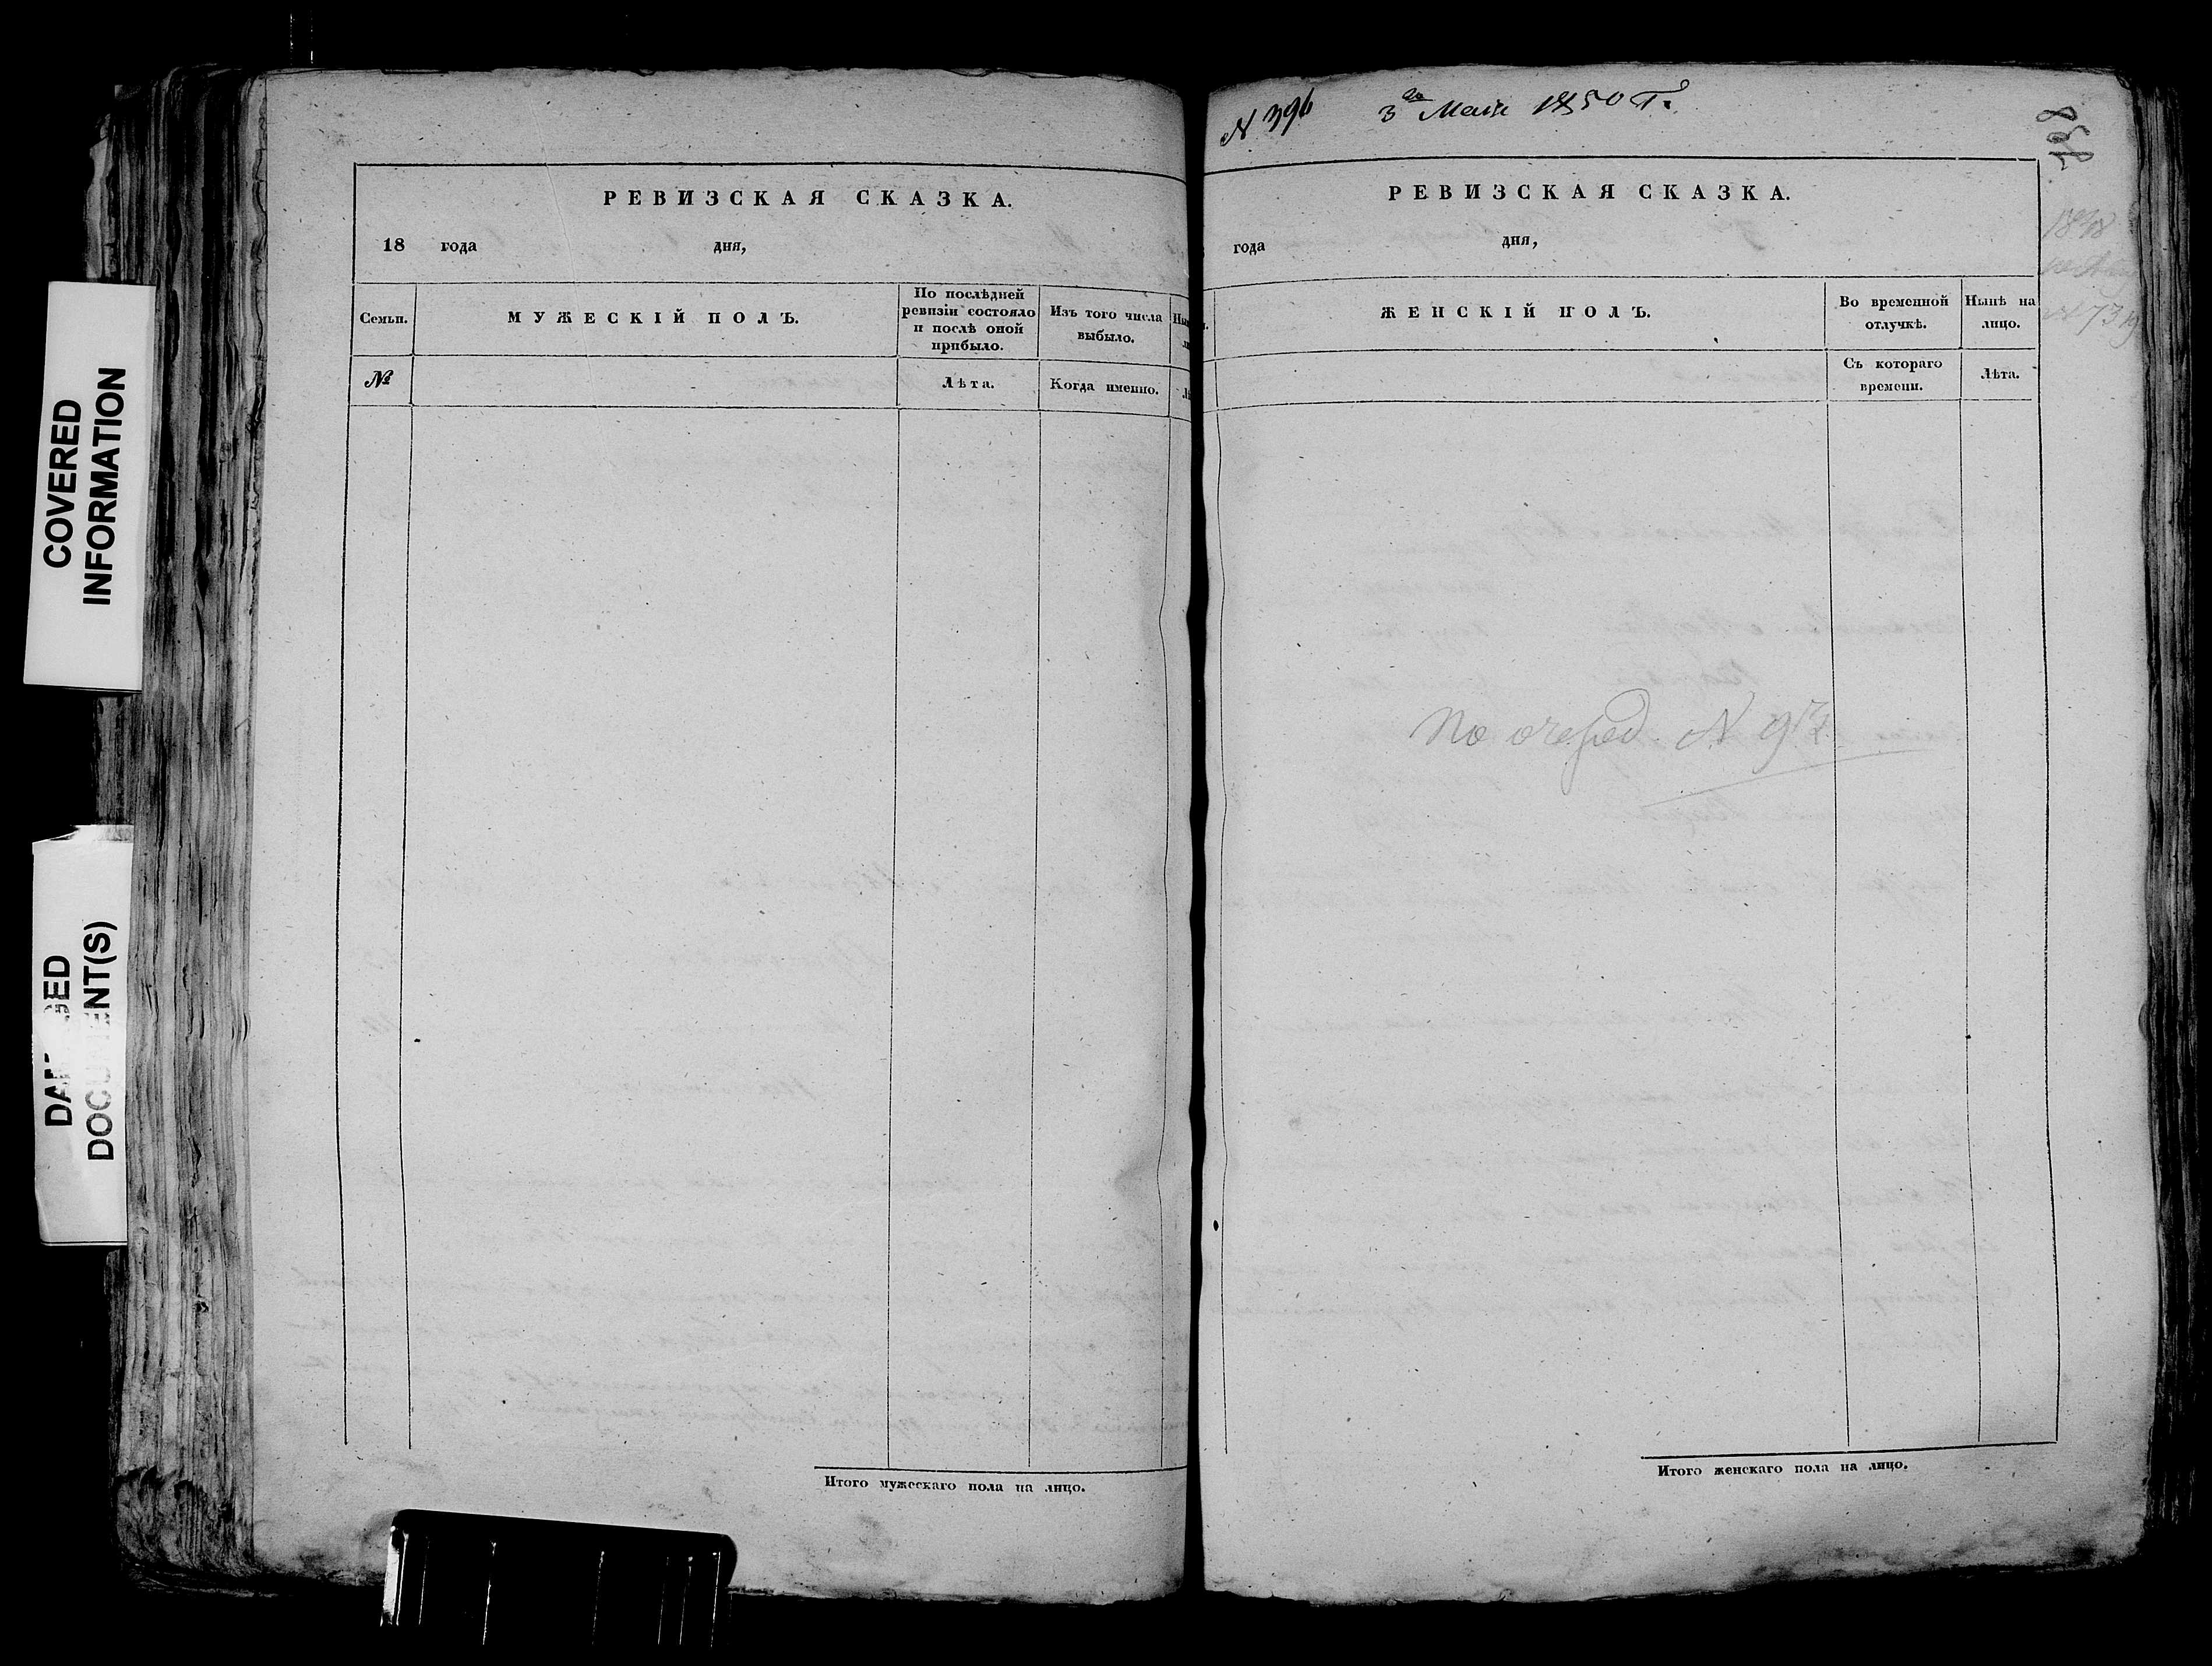 COVERED
INFORMATION
DOCUMENT(S)
РЕВИЗСКАЯ СКАЗКА.
18 года дня,
Семьи.
МУЖЕСКІЙ ПОЛЪ.
По послѣдней
ревизіи состояло
и послѣ оной
прибыло.
Изъ того числа
выбыло.
№
Лѣта.
Когда именно.
Итого мужескаго пола на лицо.
N 396 3го Маія 1850 Г.
РЕВИЗСКАЯ СКАЗКА.
года дня,
ЖЕНСКІЙ ПОЛЪ.
Во временной
отлучкѣ.
Нынѣ на
лицо.
Съ котораго
времени.
Лѣта.
По очеред. N 97
Итого женскаго пола на лицо.